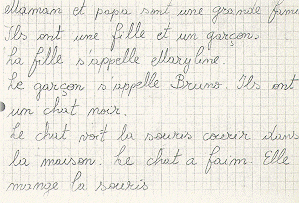 Maman et papa sont une grande
Ils ont une fille et un garçon.
La fille s'appelle Maryline.
Le garçon s'appelle Bruno. Ils ont
un chat noir.
Le chat voit la souris courir dans
la maison. Le chat a faim. Elle
mange la souris